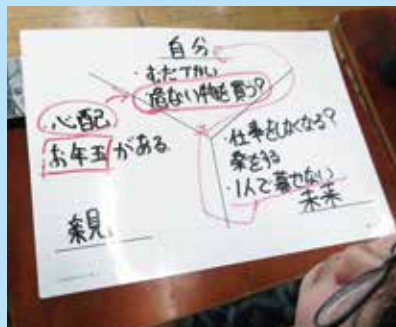 自分
・むだづかい
危ない物を買う?
心配
お年玉がある
仕事をしなくなる?
楽をする
・1人で暮せない
未来
親見